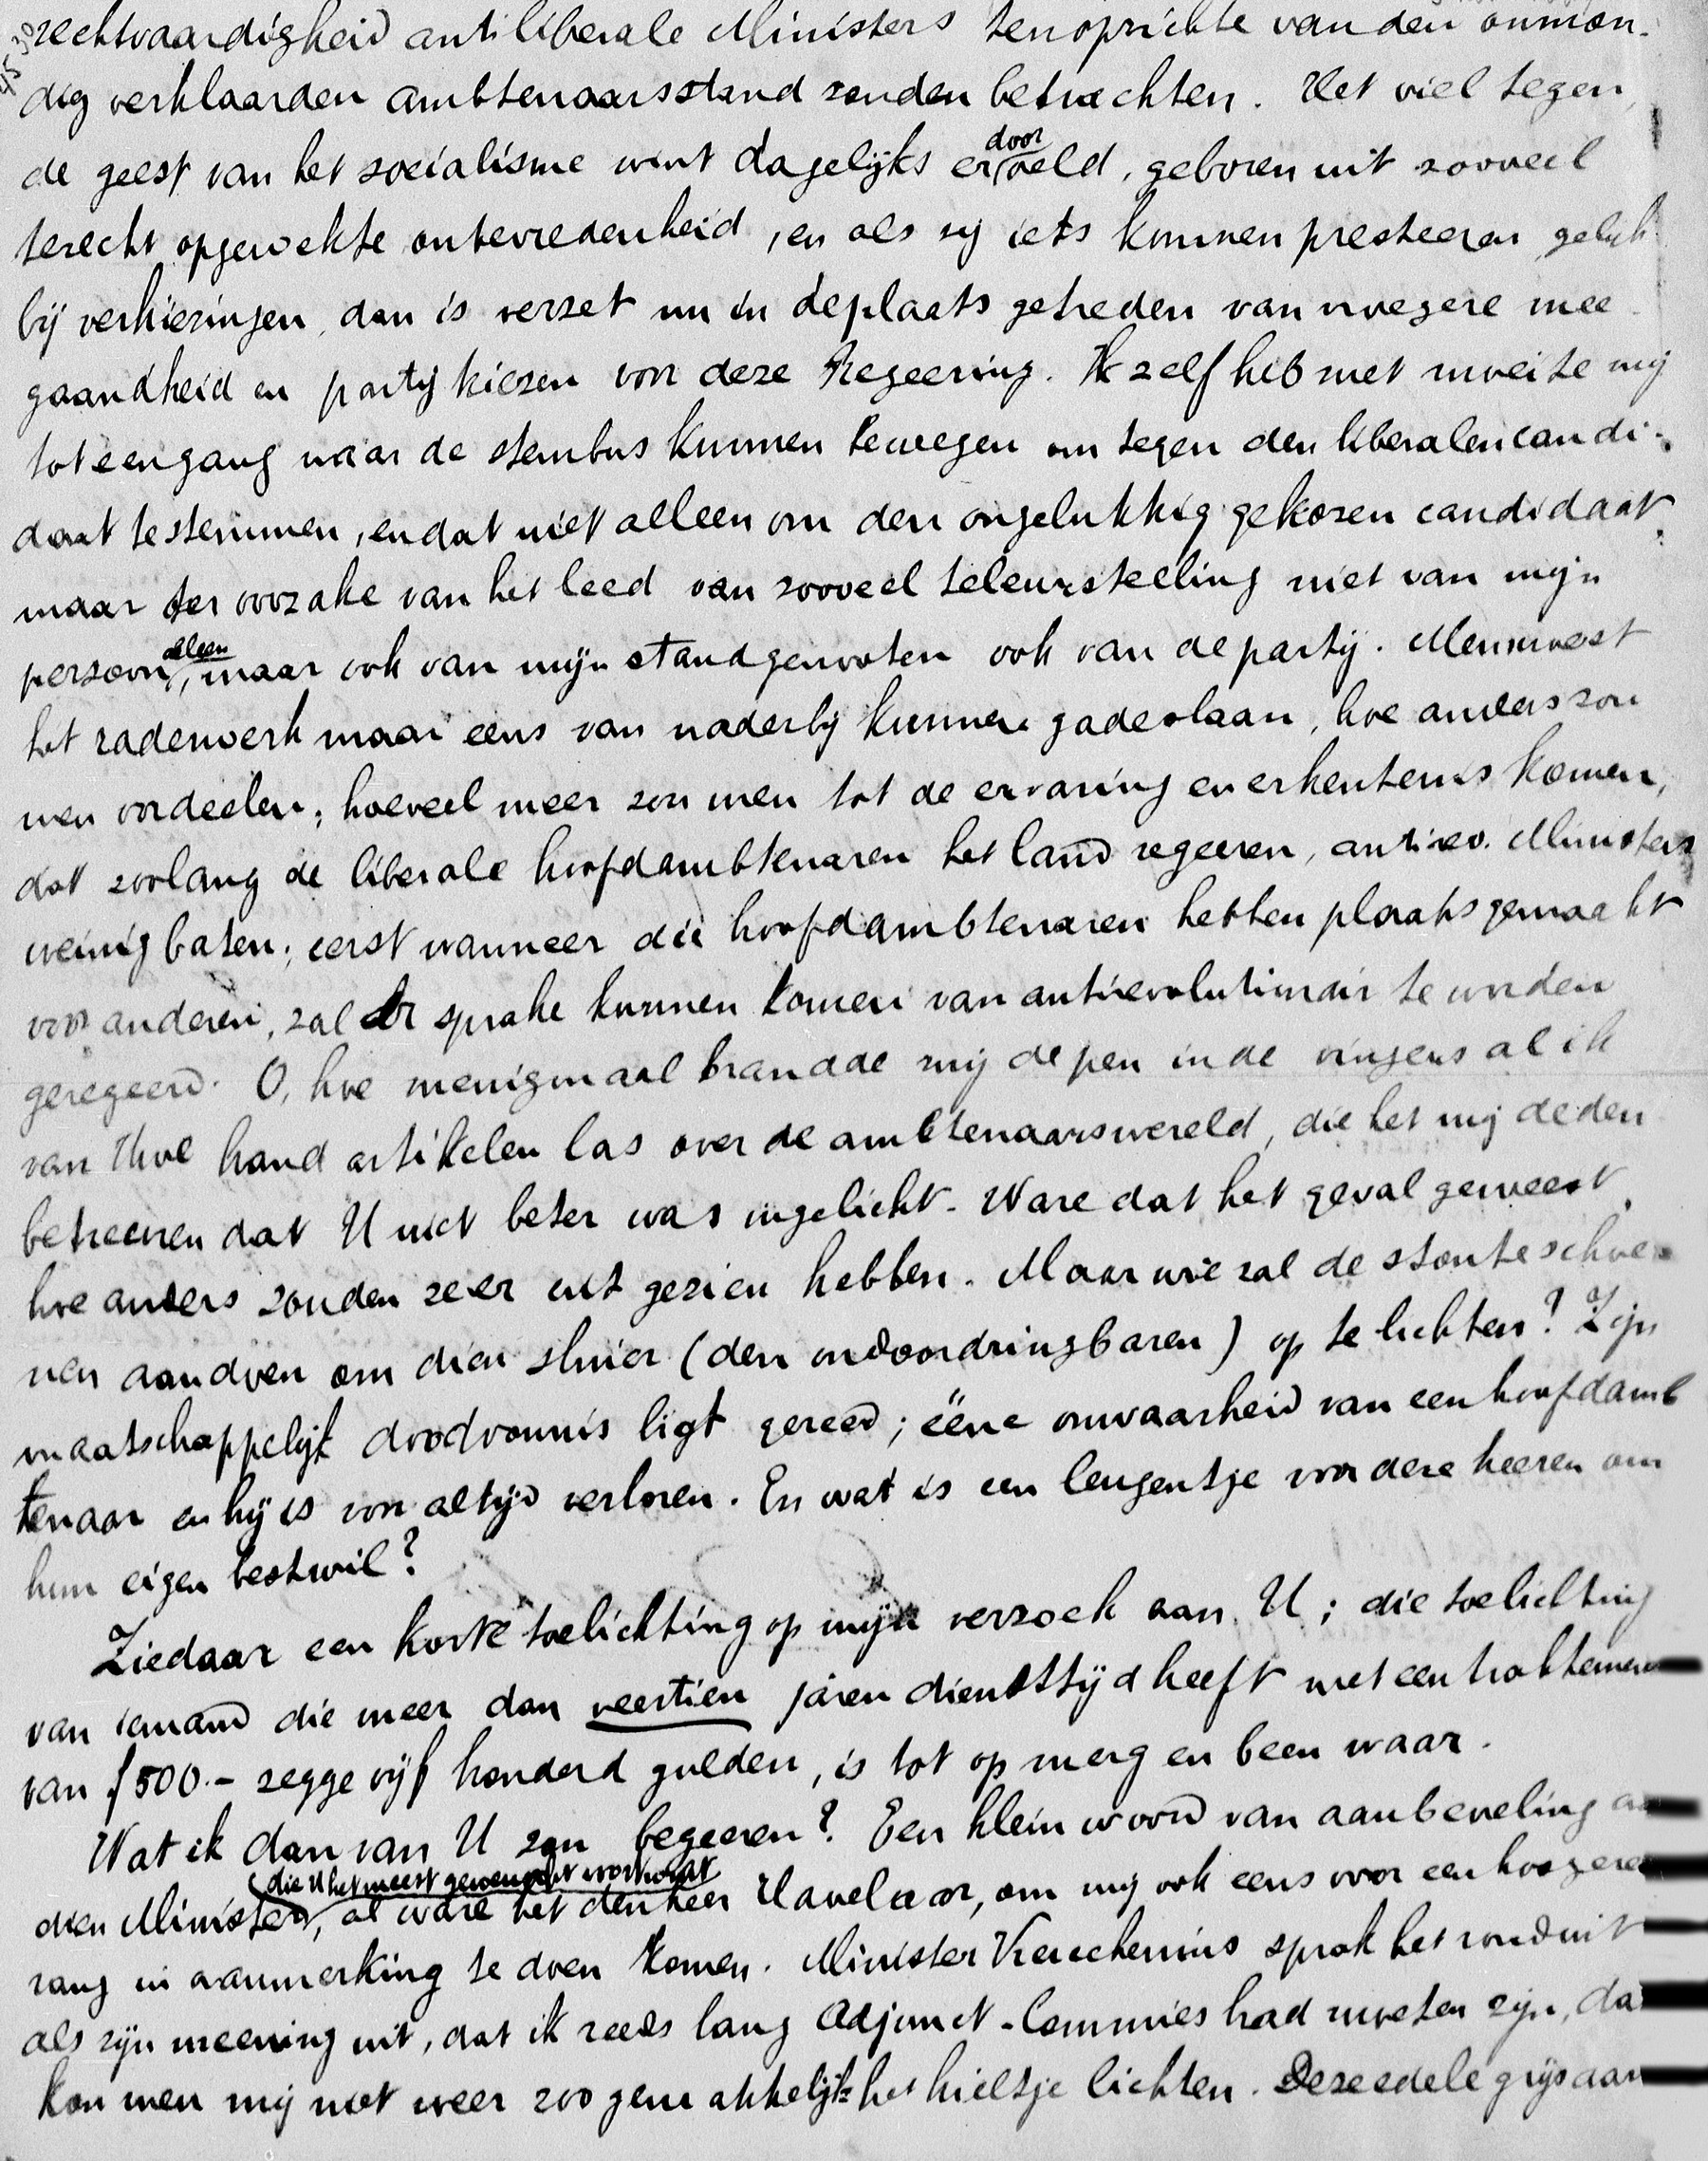 rechtvaardigheid antiliberale Ministers tenopzichte van den onmon-
dig verklaarden ambtenaarsstand zouden betrachten. Het viel tegen,
de geest van het socialisme wint dagelijks er door veld, geboren uit zooveel
terecht opgewekte ontevredenheid, en als zij iets kunnen presteeren gelijk
bij verkiezingen, dan is verzet nu in de plaats getreden van vroegere mee
gaandheid en partij kiezen voor deze Regeering. Ik zelf heb met moeite mij
tot een gang naar de stembus kunnen bewegen om tegen den liberalen candi-
daat te stemmen, en dat niet alleen om den ongelukkig gekozen candidaat,
maar ter oorzake van het leed van zooveel teleurstelling niet van mijn
persoon alleen, maar ook van mijn standgenooten ook van de partij. Men moest
het raderwerk maar eens van naderbij kunnen gadeslaan, hoe anders zou
men oordeelen; hoeveel meer zou men tot de ervaring en erkentenis komen,
dat zoolang de liberale hoofdambtenaren het land regeeren, antirev. Ministers
weinig baten; eerst wanneer die hoofdambtenaren hebben plaats gemaakt
voor anderen, zal er sprake kunnen komen van antirevolutionair te worden
geregeerd. O, hoe menigmaal brandde mij de pen in de vingers als ik
van Uwe hand artikelen las over de ambtenaarswereld, die het mij deden
betreuren dat U niet beter was ingelicht. Ware dat het geval geweest,
hoe anders zouden ze er uit gezien hebben. Maar wie zal de stoute schoe
nen aandoen om dien sluier (den ondoordringbaren) op te lichten? Zijn
maatschappelijk doodvonnis ligt gereed; ééne onwaarheid van een hoofdamb
tenaar en hij is voor altijd verloren. En wat is een leugentje voor deze heeren om
hun eigen bestwil?
Ziedaar een korte toelichting op mijn verzoek aan U; die toelichting
van iemand die meer dan veertien jaren diensttijd heeft met een traktement
van f 500.- zegge vijf honderd gulden, is tot op merg en been waar.
Wat ik dan van U zou begeeren? Een klein woord van aanbeveling
die U het meest gewenscht voorkomt
dien Minister, al ware het den heer Havelaar, om mij ook eens voor een hoogeren
rang in aanmerking te doen komen. Minister Keuchenius sprak het ronduit
als zijn meening uit, dat ik reeds lang Adjunct-Commies had moeten zijn, dan
kon men mij niet weer zoo gemakkelijk het hieltje lichten. Deze edele grijsaard